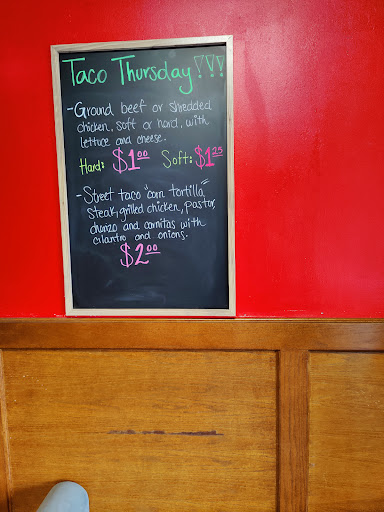 Taco Thursday!!!
-Ground beef or shredded
chicken, soft or hard, with
lettuce and cheese.
Hard: $1.00 Soft: $1.25
-Street taco "corn tortilla"
steak, grilled chicken, pastor,
chorizo and carnitas with
cilantro and onions.
$2.00